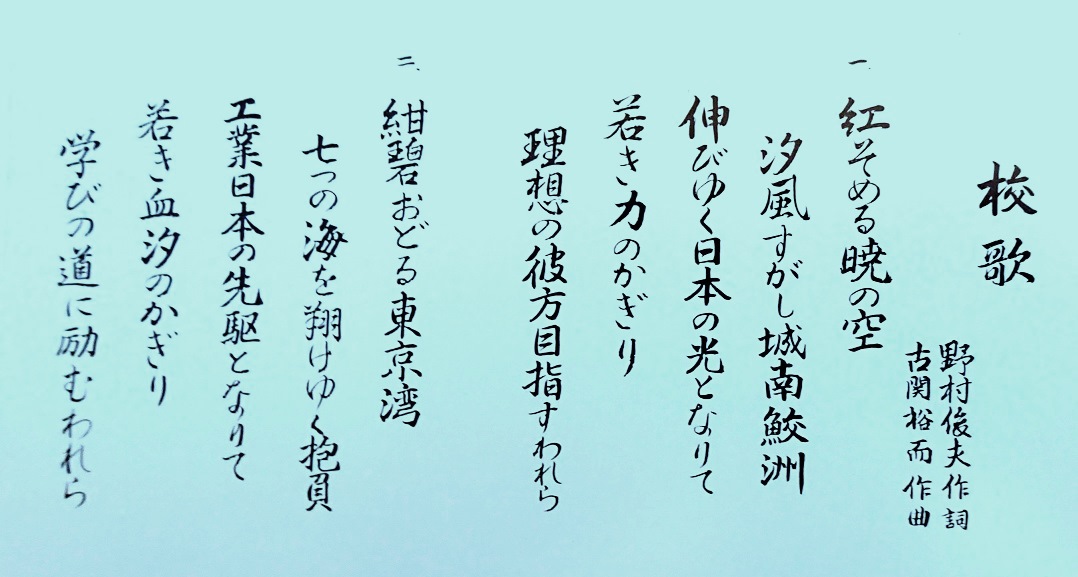 校歌
野村俊夫作詞
古関裕而作曲
一、
紅そめる暁の空
汐風すがし城南鮫洲
伸びゆく日本の光となりて
若き力のかぎり
理想の彼方目指すわれら
二、
紺碧おどる東京湾
七つの海を翔けゆく抱負
工業日本の先駆となりて
若き血汐のかぎり
学びの道に励むわれら